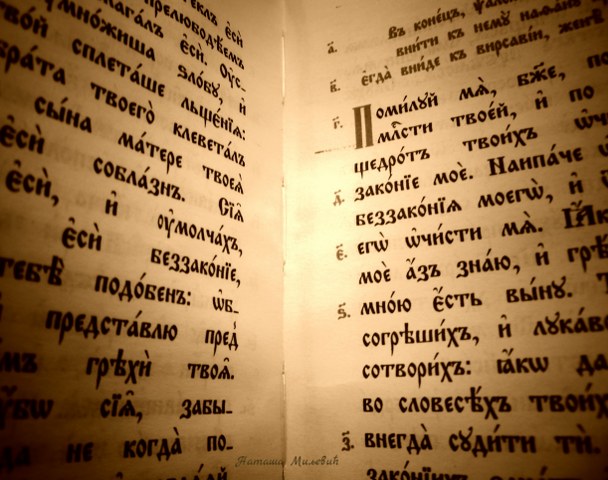 є҆сѝ
прелюбодѣемъ
є҆сѝ. Оу҆с_
ѹмно́жиша ѕло́бꙋ, и҆
сплета́ше льще́нїѧ:
бра́та твоегѡ̀ клевета́лъ
сы́на ма́тере твоеѧ̀
є҆сѝ собла́знъ. Сїѧ̑
є҆сѝ, и҆ ᲂу҆молча́хъ,
є҆сѝ беззако́нїе,
тебѣ̀ подо́бенъ: ѡ҆б_
и҆ предста́влю пред̾
грѣхѝ твоѧ̑.
сїѧ̑, забы_
да не когда̀ по_
а҃. Въ коне́цъ,
вни́ти къ немꙋ̀ наѳа́нꙋ
в҃. є҆гда̀ вни́де къ вирсаві́и, женѣ̀
г҃. Поми́лꙋй мѧ̀, бж҃е,
млⷭ҇ти твое́й, и҆ по
щедро́тъ твои́хъ
д҃. зако́нїе моѐ. Наипа́че
беззако́нїѧ моегѡ̀, и҆
є҃. є҆гѡ̀ ѡ҆чи́сти мѧ̀.
моѐ а҆́зъ зна́ю, и҆
ѕ҃. мно́ю є҆́сть вы́нꙋ.
согрѣши́хъ, и҆
сотвори́хъ: ꙗ҆́кѡ да
во словесѣ́хъ твои́х
з҃. внегда̀ сꙋди́ти тѝ.
Наташа Миљевић